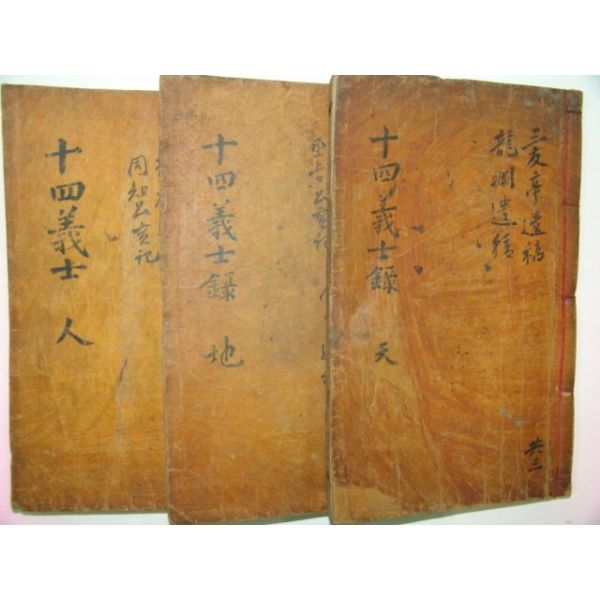 三友亭遺稿
龍湖遺稿
十四義士錄 天
共三
十四義士錄 地
實記
周知
實記
十四義士 人